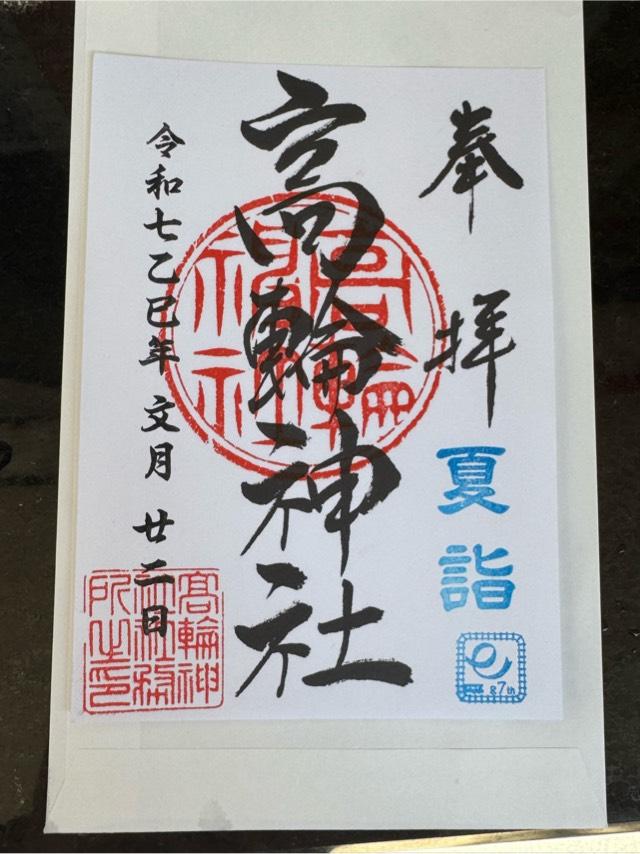 奉拝
夏詣
87th
高輪神社
高輪神社
令和七乙巳年 文月 廿二日
高輪神社務所之印